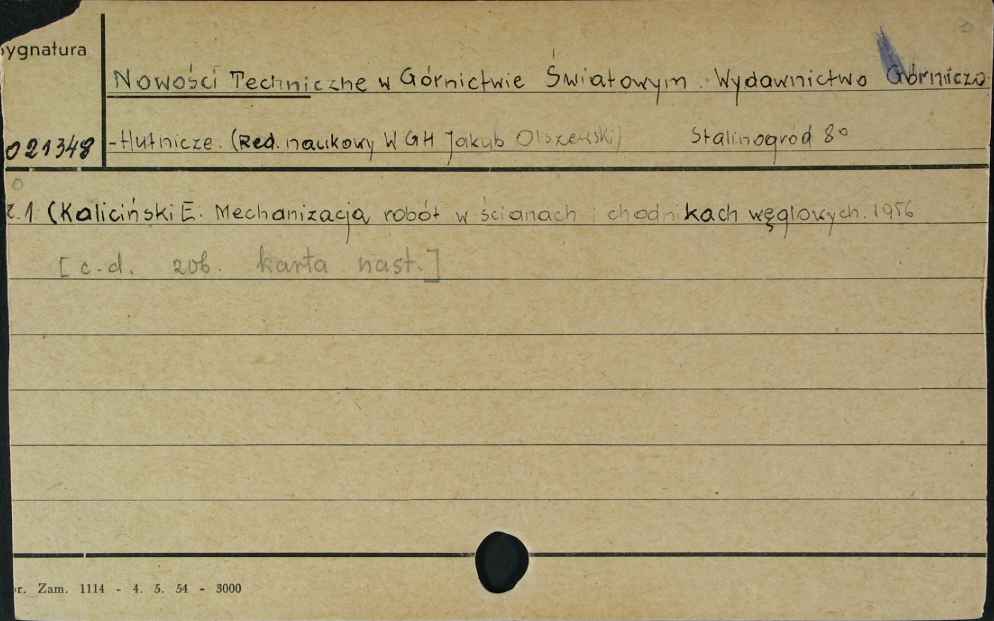 ygnatura
Nowości Techniczne w Górnictwie Światowym. Wydawnictwo Górniczo
021348 -Hutnicze. (Red. naukowy WGH Jakub Olszewski) Stalinogród 8°
z.1 (Kaliciński E. Mechanizacja robót w ścianach i chodnikach węglowych. 1956
[c.d. zob. karta nast.]
r. Zam. 1114 - 4. 5. 54 - 3000